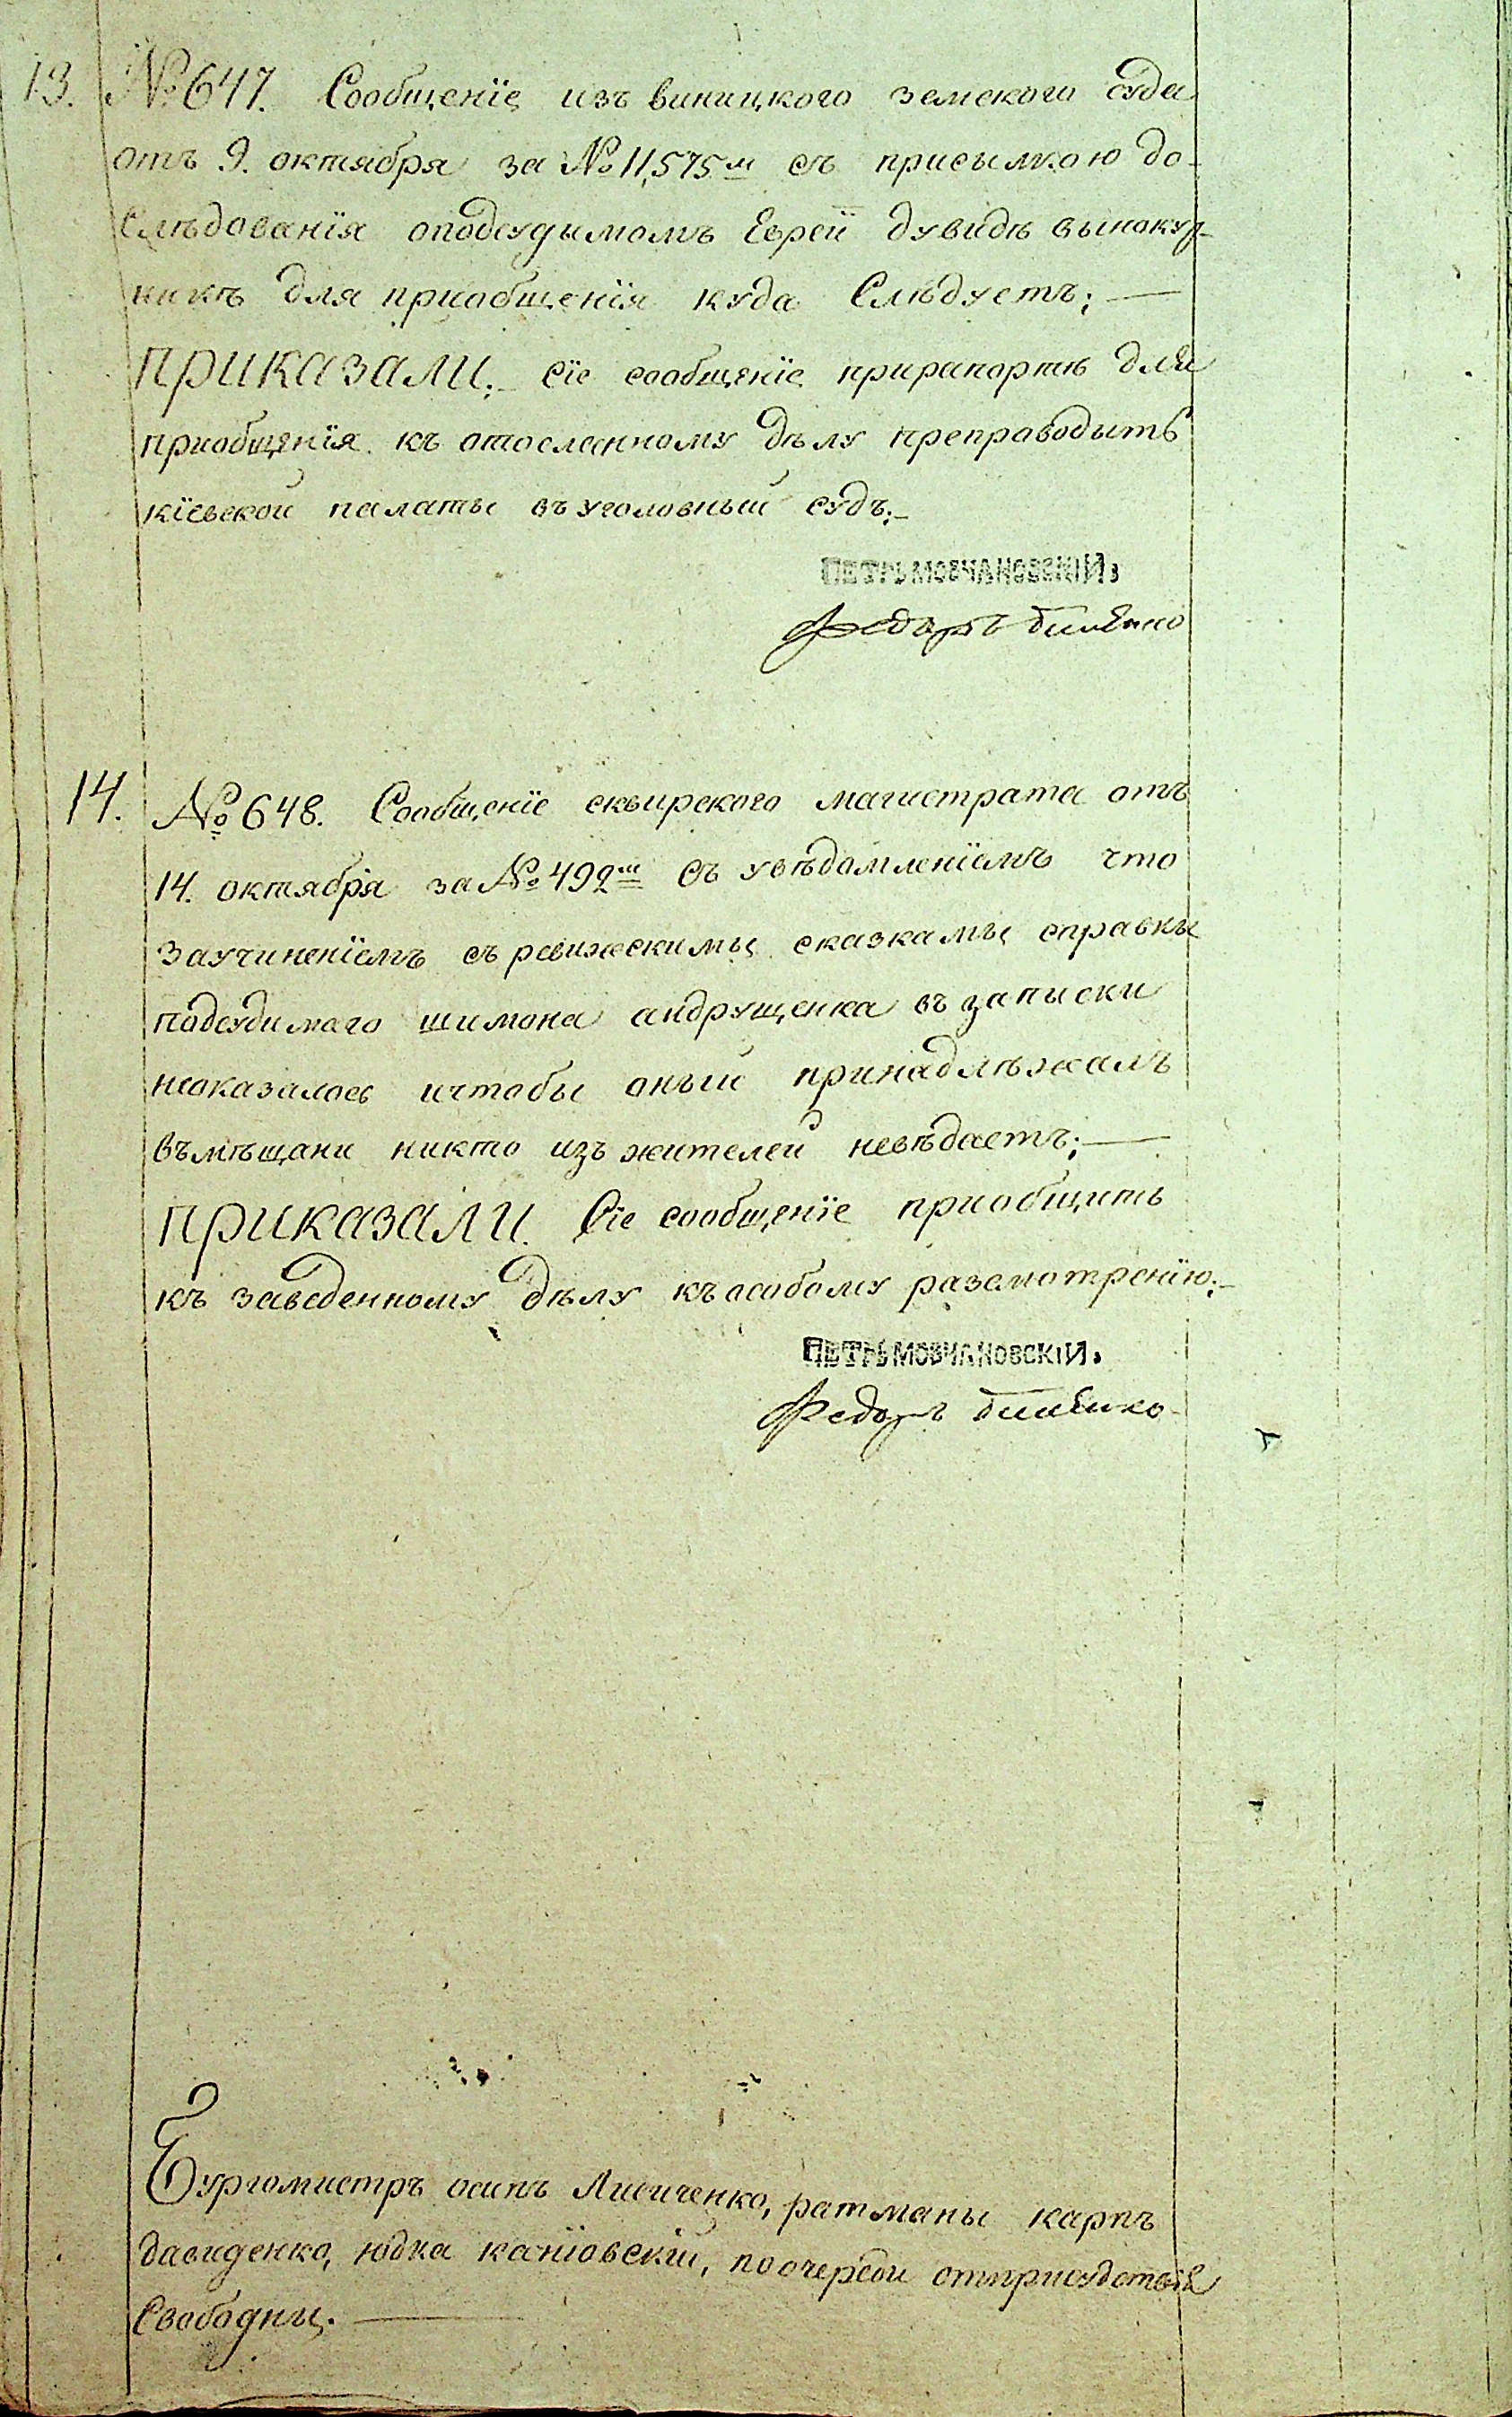 13. № 647. Сообщенїе изъ виницкого земского суда
отъ 9. октября за № 11,575м съ присылкою до-
слѣдованїя оподсудымомъ Евреи дувидѣ вынокур-
никѣ для приобщенїя куда Слѣдуетъ;—
приказали: сїе сообщенїе прирапортѣ для
приобщенїя къ отосланному дѣлу преправодыть
кїевской палаты въ уголовный судъ;—
ПЕТРЬ МОВЧАНОВСКІЙ,
Федоръ
14. № 648. Сообщенїе сквирского магистрата отъ
14. октября за № 492м съ увѣдомленїемъ что
заучиненїемъ съ ревижскимы сказкамы справкы
подсудимаго шимона андрущенка въ запыски
неоказалось ичтобы оный принадлѣжалъ
въмѣщани никто изъ жителей невѣдаетъ;—
приказали. Сїе сообщенїе приобщить
къ заведенному дѣлу къ особому разсмотренїю;—
ПЕТРЬ МОВЧАНОВСКІЙ,
Федоръ
Бургомистръ осипъ Лисиченко, ратманы карпъ
давиденко, юдка канїовскїй, по очереди отприсудствїя
Свободны.—